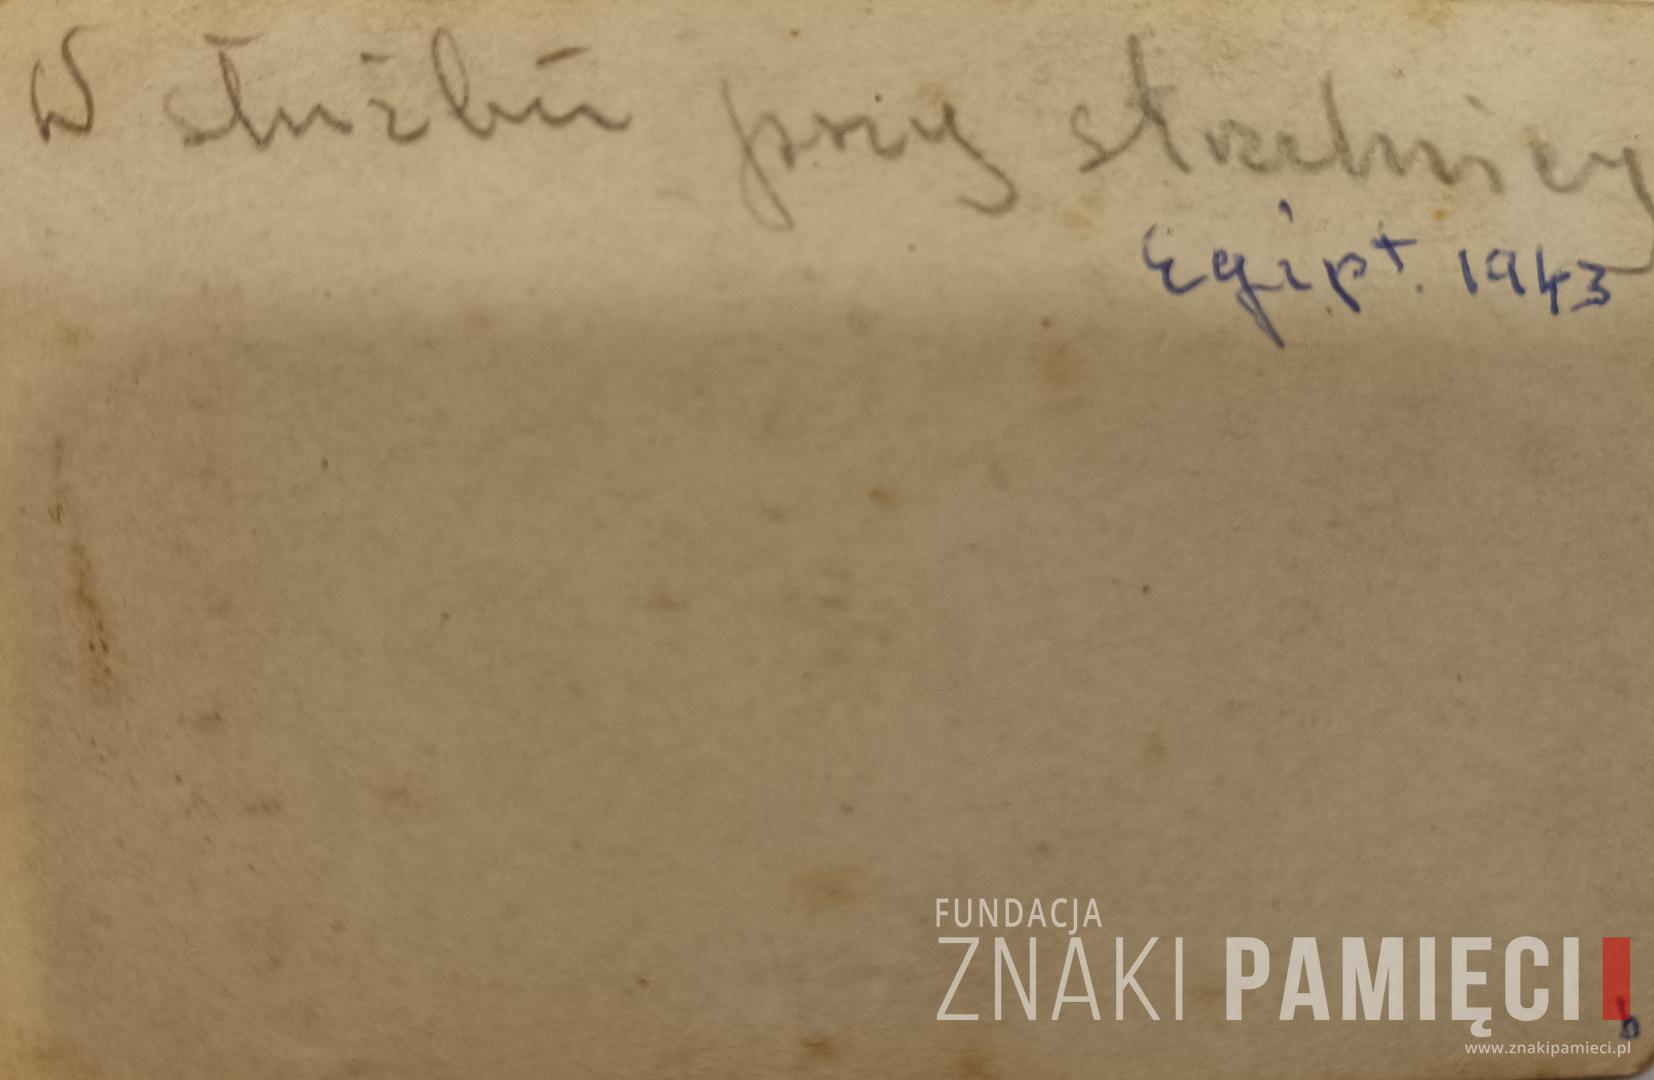 W służbie przy strzelnicy
Egipt. 1943
FUNDACJA
ZNAKI PAMIĘCI
b
www.znakipamieci.pl